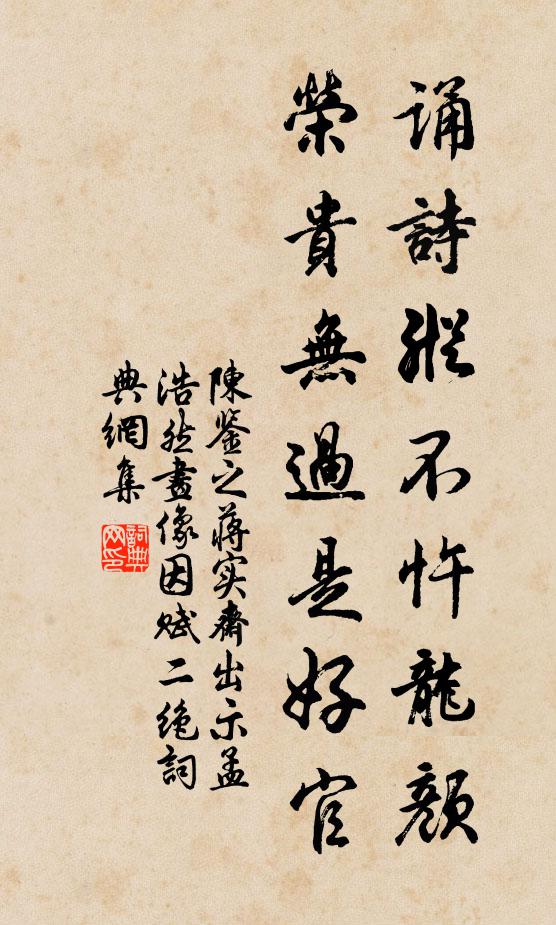 誦詩縱不忤龍顏
榮貴無過是好官
陳鑒之蔣实齋出示孟
浩然畫像因赋二绝詞
典網集
詞典
网印